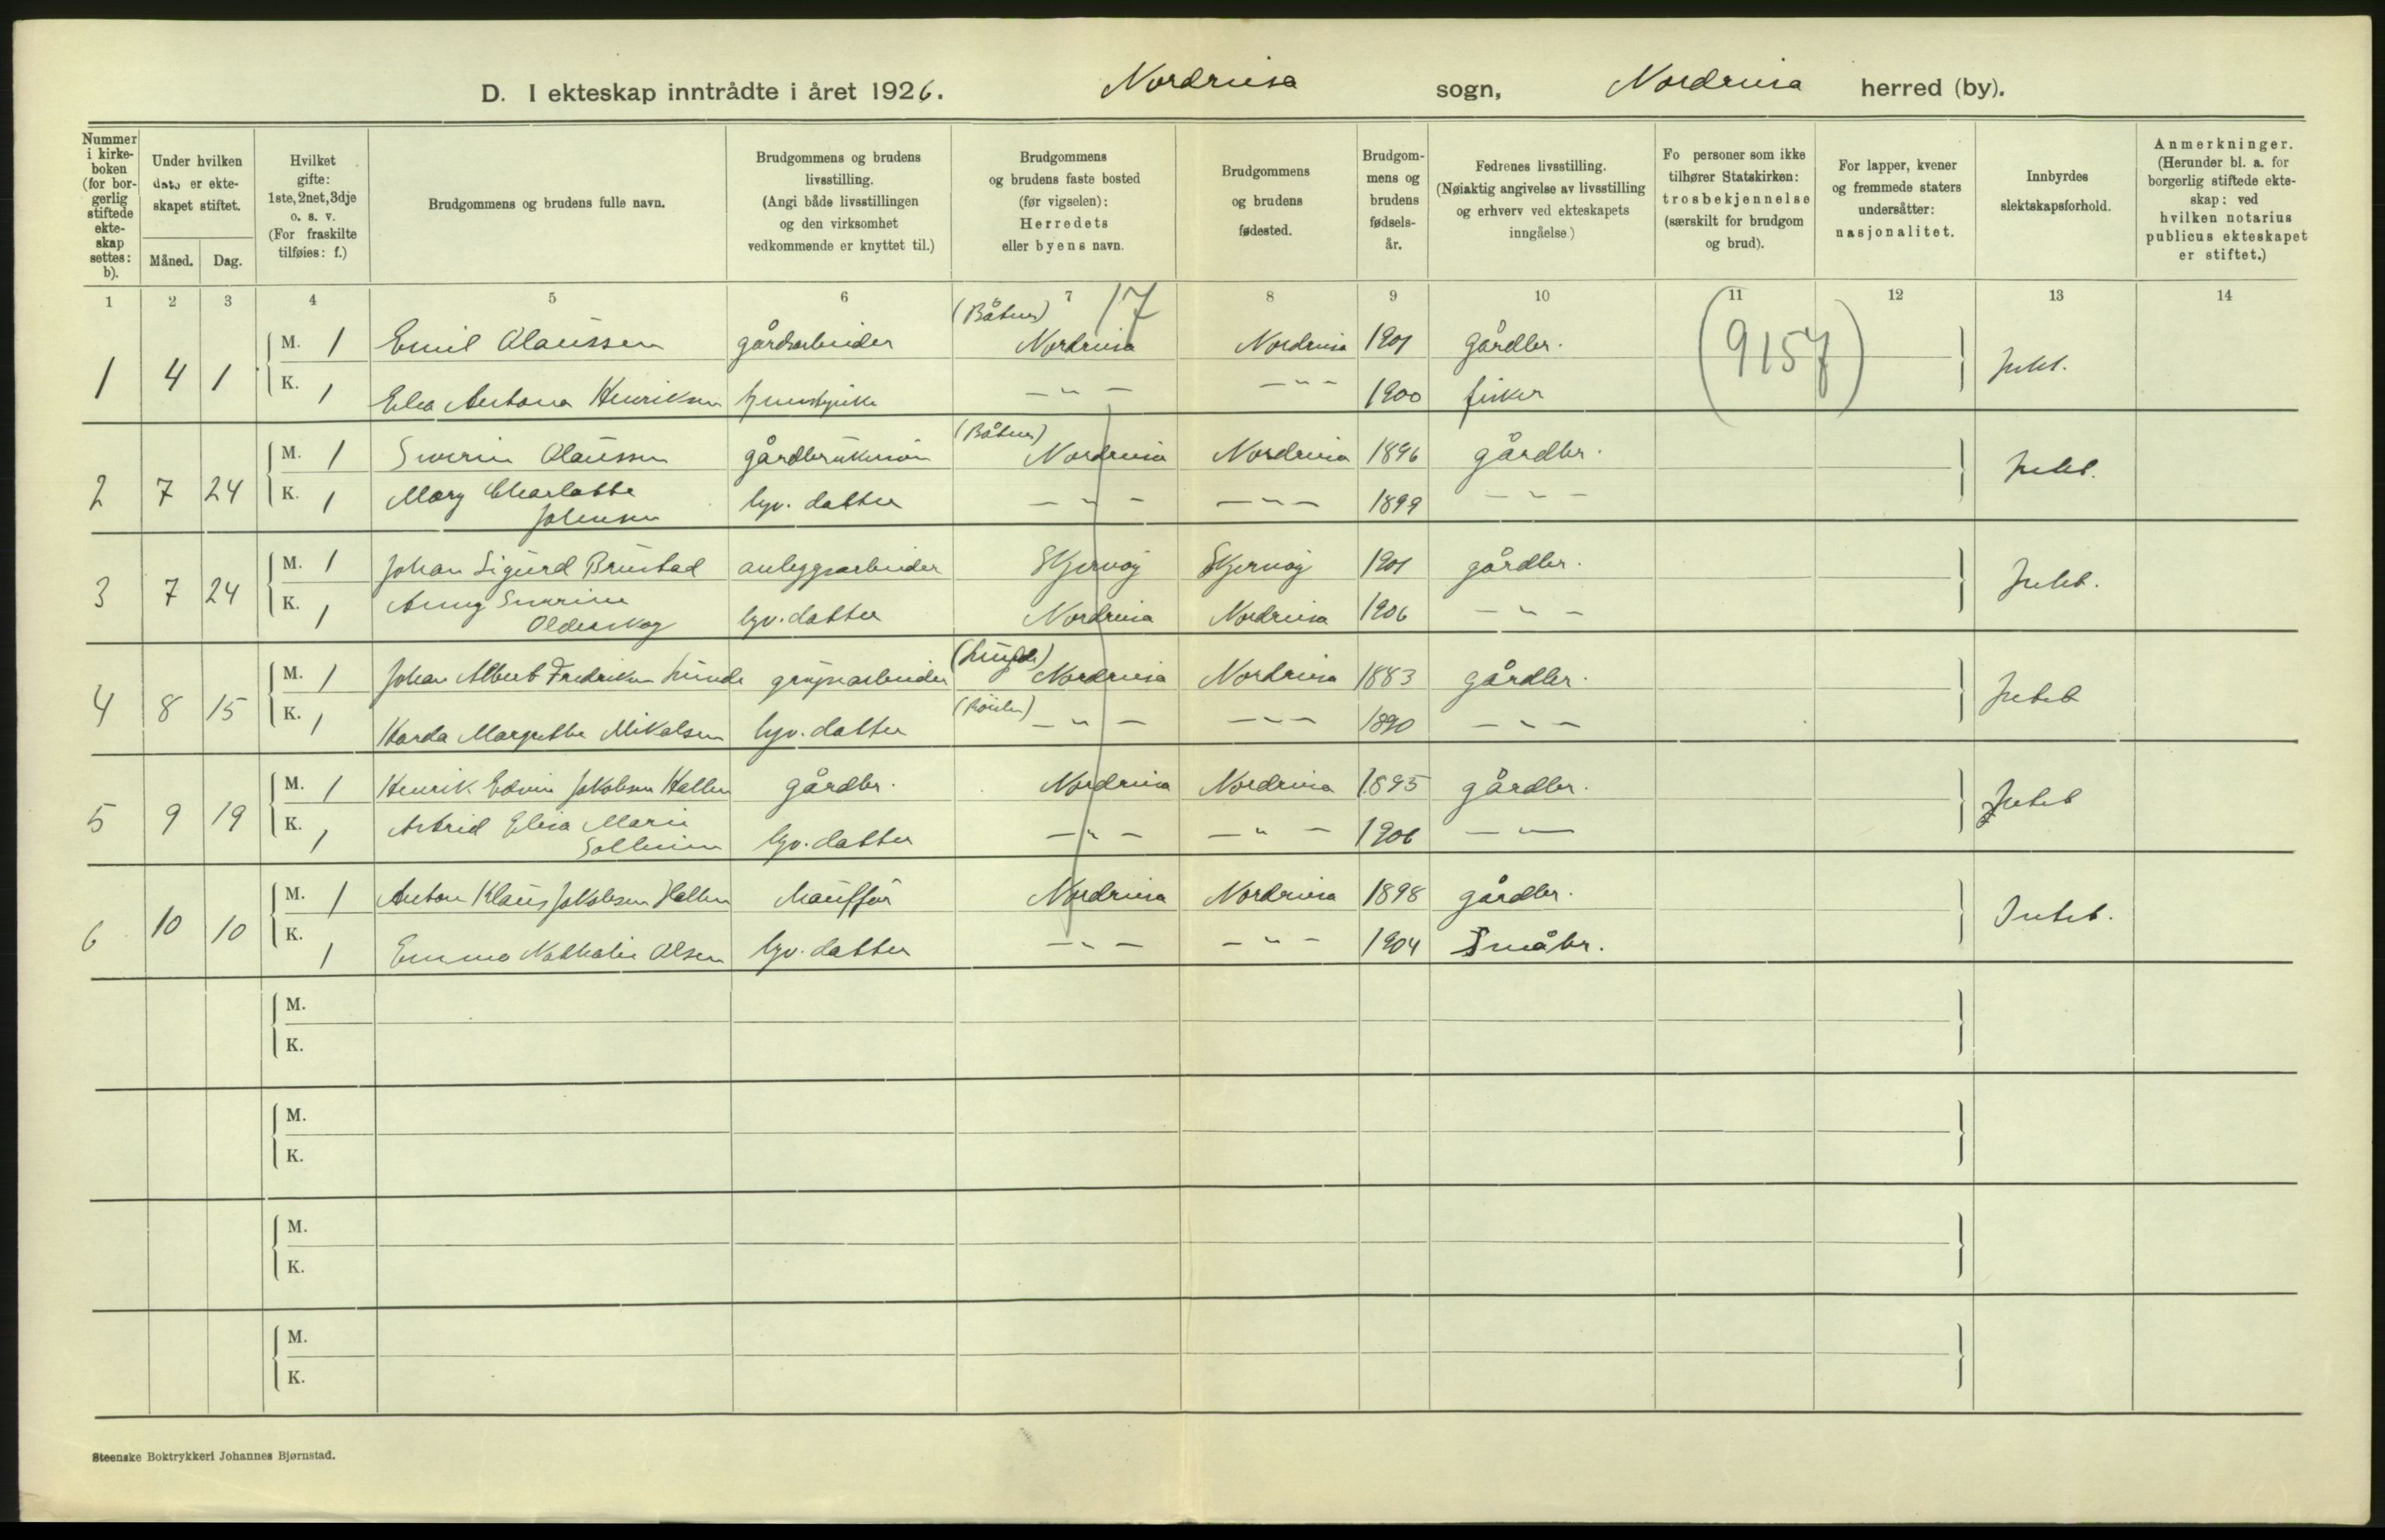 D. I ekteskap inntrådte i året 1926. Nordreisa sogn, Nordreisa herred (by).
Nummer i kirke-boken (for bor-gerlig stiftede ekte-skap settes: b).
Under hvilken dato er ekte-skapet stiftet.
Måned. Dag.
Hvilket gifte: 1ste, 2net, 3dje o. s. v. (For fraskilte tilføies: f.)
Brudgommens og brudens fulle navn.
Brudgommens og brudens livsstilling. (Angi både livsstillingen og den virksomhet vedkommende er knyttet til.)
Brudgommens og brudens faste bosted (før vigselen): Herredets eller byens navn.
Brudgommens og brudens fødested.
Brudgom-mens og brudens fødsels-år.
Fedrenes livsstilling. (Nøiaktig angivelse av livsstilling og erhverv ved ekteskapets inngåelse)
Fo personer som ikke tilhører Statskirken: trosbekjennelse (særskilt for brudgom og brud).
For lapper, kvener og fremmede staters undersåtter: nasjonalitet.
Innbyrdes slektskapsforhold.
Anmerkninger. (Herunder bl. a. for borgerlig stiftede ekte-skap: ved hvilken notarius publicus ekteskapet er stiftet.)
1 2 3 4 5 6 7 8 9 10 11 12 13 14
17
(9157)
1 4 1 M. 1 Emil Olaussen gårdsarbeider Nordreisa Nordreisa 1901 gårdbr. Intet.
K. 1 Elea Antona Henriksen — " — — " — 1900 fisker
2 7 24 M. 1 Severin Olaussen gårdbruker Nordreisa Nordreisa 1896 gårdbr. Intet.
K. 1 Mary Charlotte Johensen hjv. datter — " — — " — 1899 — " —
3 7 24 M. 1 Johan Sigurd Brustad anleggsarbeider Skjervøy Skjervøy 1901 gårdbr. Intet.
K. 1 Anny Severine Olderskog hjv. datter Nordreisa Nordreisa 1906 — " —
4 8 15 M. 1 Johan Albert Fredriksen Lunde grubearbeider Nordreisa Nordreisa 1883 gårdbr. Intet
K. 1 Harda Margrethe Mikalsen hjv. datter — " — — " — 1890 — " —
5 9 19 M. 1 Henrik Edvin Jakobsen Hallen gårdbr. Nordreisa Nordreisa 1895 gårdbr. Intet
K. 1 Astrid Elisa Marie hjv. datter — " — — " — 1906 — " —
6 10 10 M. 1 Anton Klaus Jakobsen Hallen Nordreisa Nordreisa 1898 gårdbr. Intet.
K. 1 Emma Nathalie Olsen hjv. datter — " — — " — 1904 Småbr.
M.
K.
M.
K.
M.
K.
M.
K.
Steenske Boktrykkeri Johannes Bjørnstad.